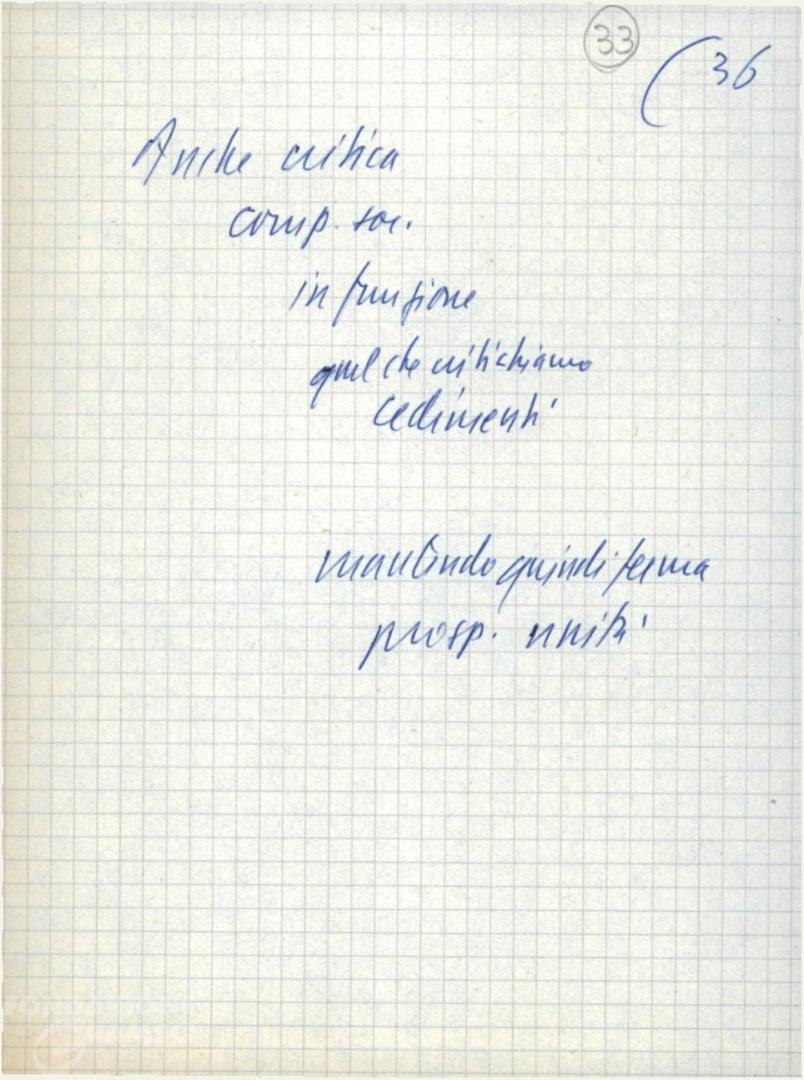 33
(36
Anche critica
comp. soc.
in funzione
quel che critichiamo
cedimenti
quindi ferma
prosp. unità